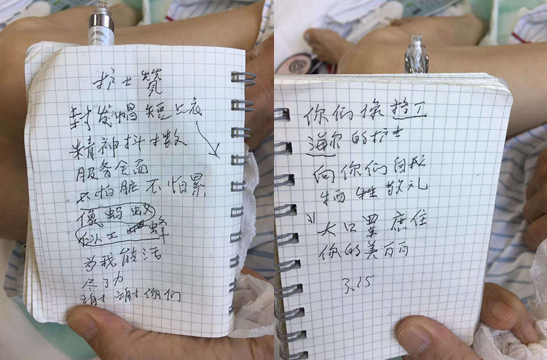 护士赞
封发帽短上衣
精神抖擞
服务全面
不怕脏不怕累
像蚂蚁
似工蜂
为我能活
尽了力
谢谢你们
你们像
的护士
向你们自我
牺牲敬礼
大口罩庶住
你的美丽
3.15